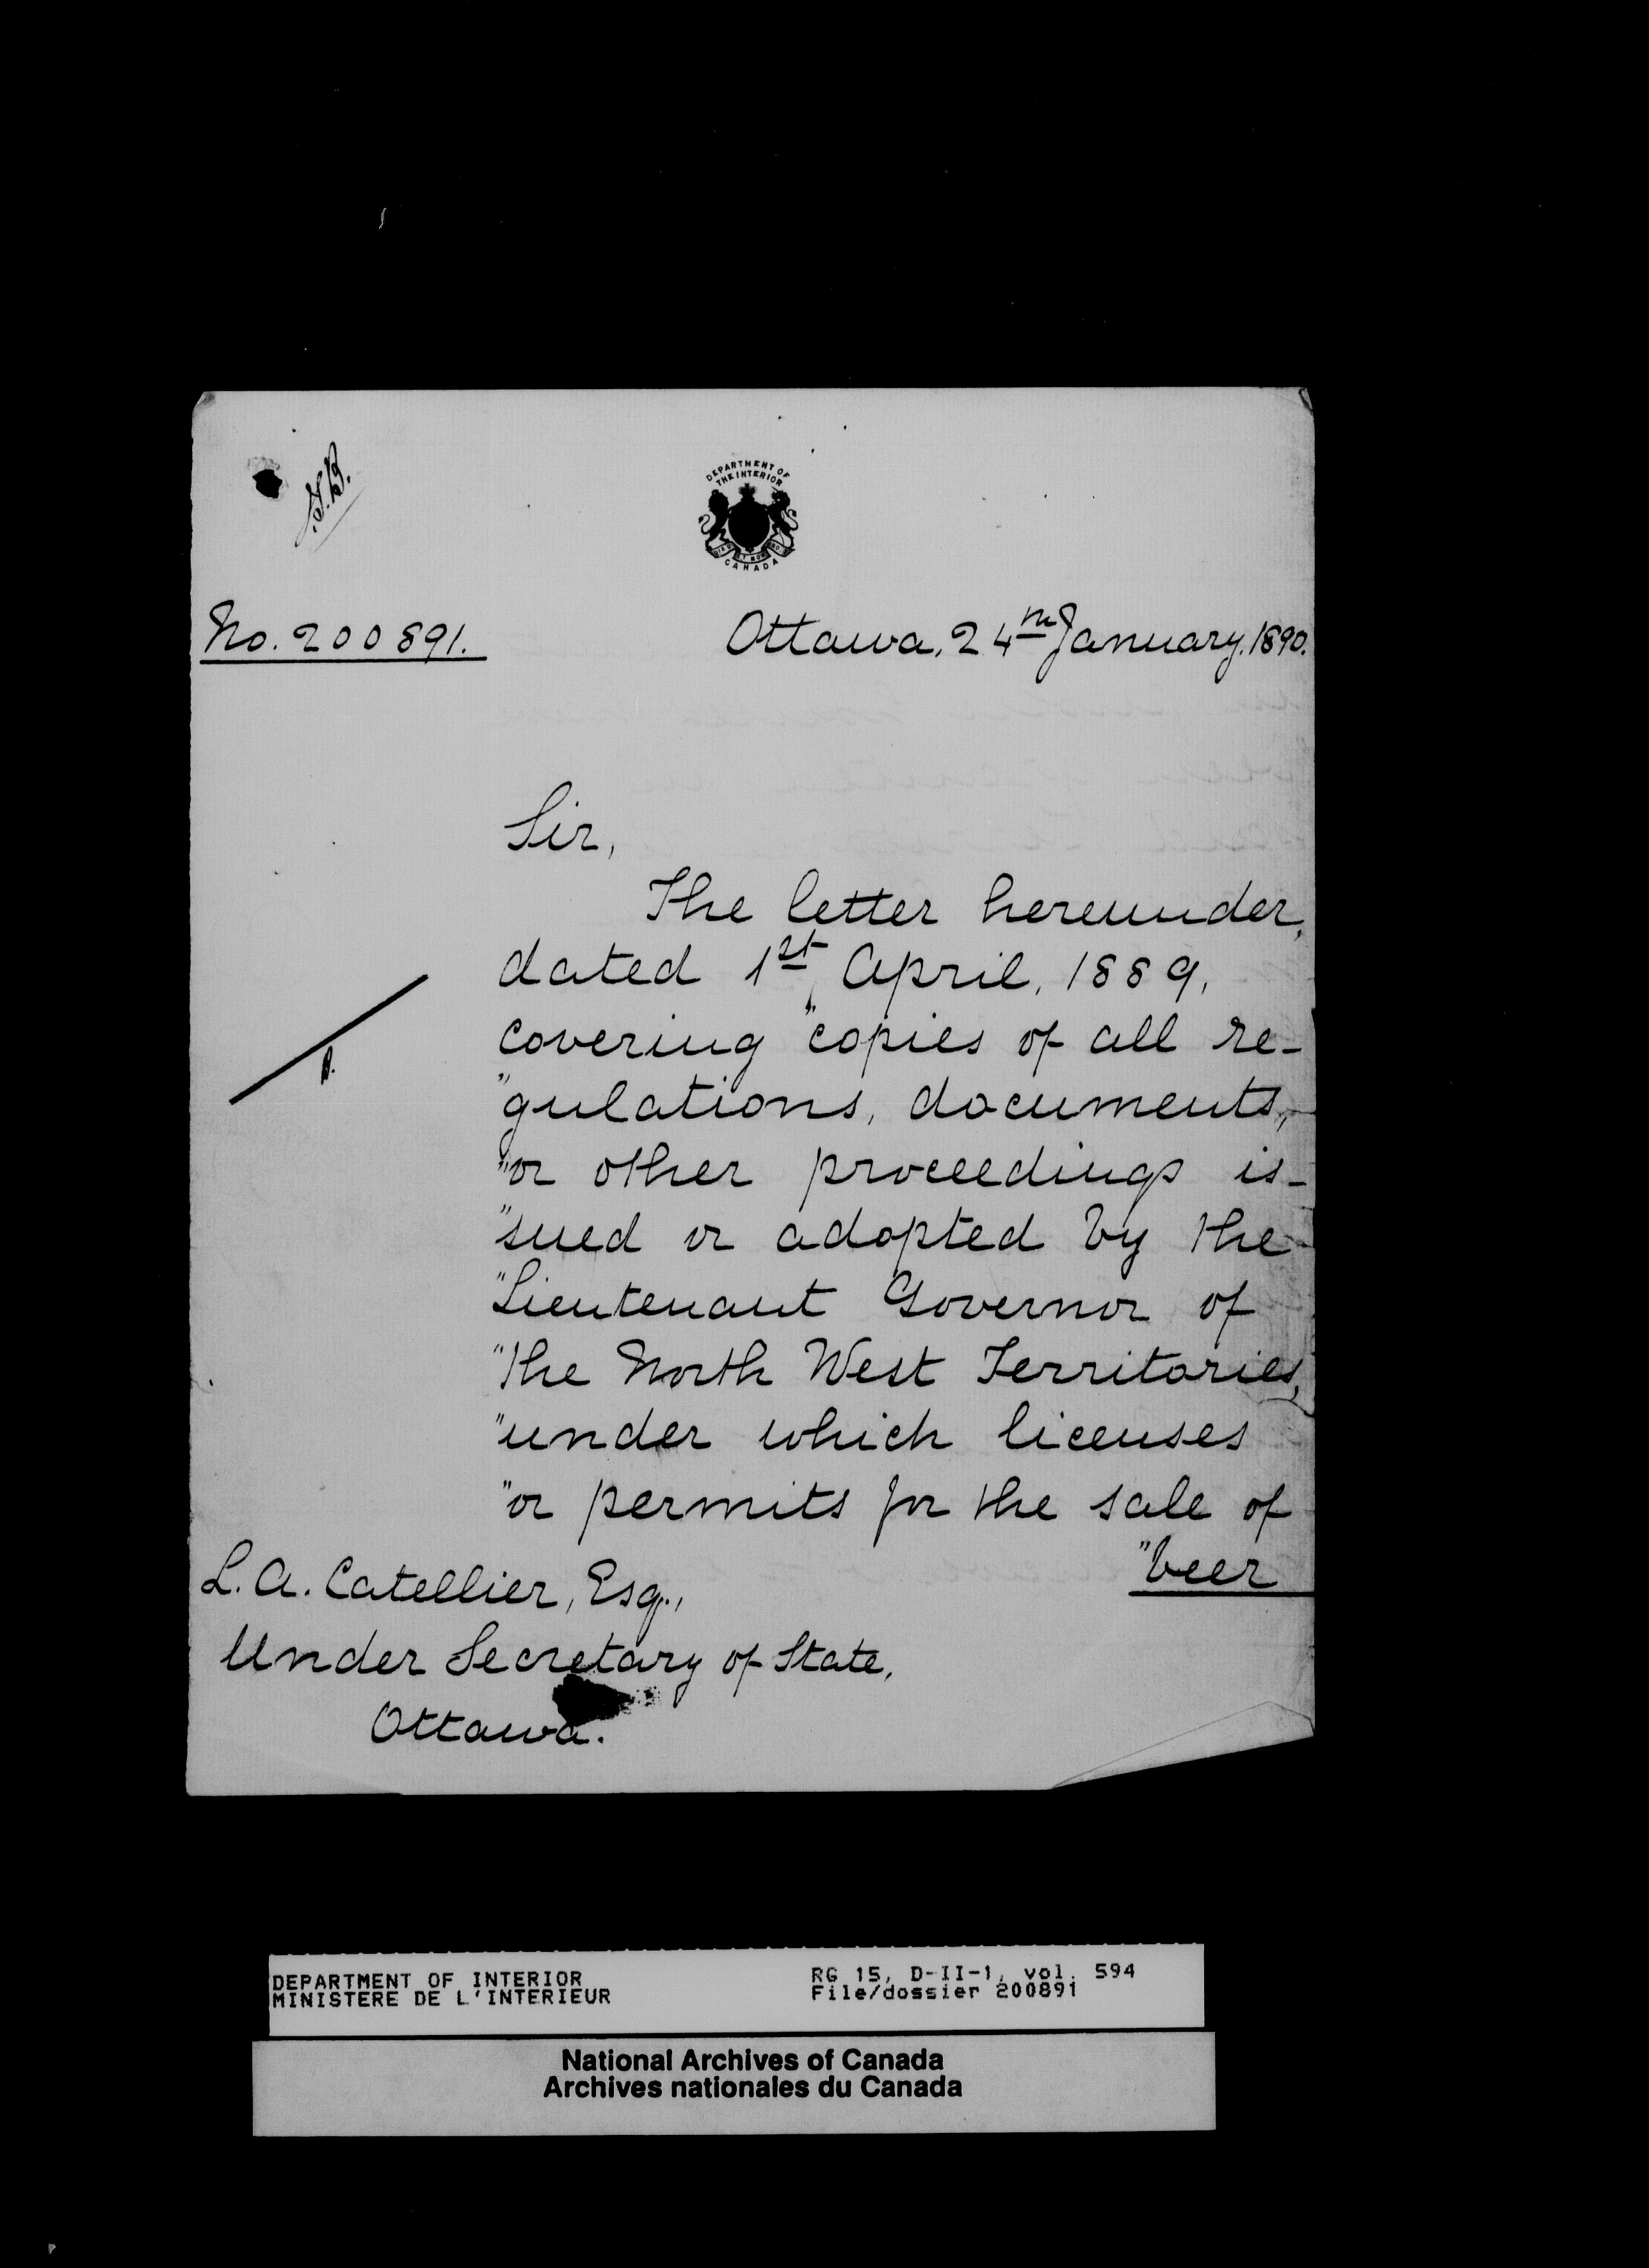 J.B.
DEPARTMENT OF
THE INTERIOR
CANADA
No. 200891.
Ottawa, 24th January, 1890.
Sir,
The letter hereunder,
dated 1st April, 1889,
covering "copies of all re-
"gulations, documents,
"or other proceedings is-
"sued or adopted by the
"Lieutenant Governor of
"the North West Territories,
"under which licenses
"or permits for the sale of
"beer
L. A. Catellier, Esq.,
Under Secretary of State,
Ottawa.
DEPARTMENT OF INTERIOR
MINISTERE DE L'INTERIEUR
RG 15, D-II-1, vol. 594
File/dossier 200891
National Archives of Canada
Archives nationales du Canada